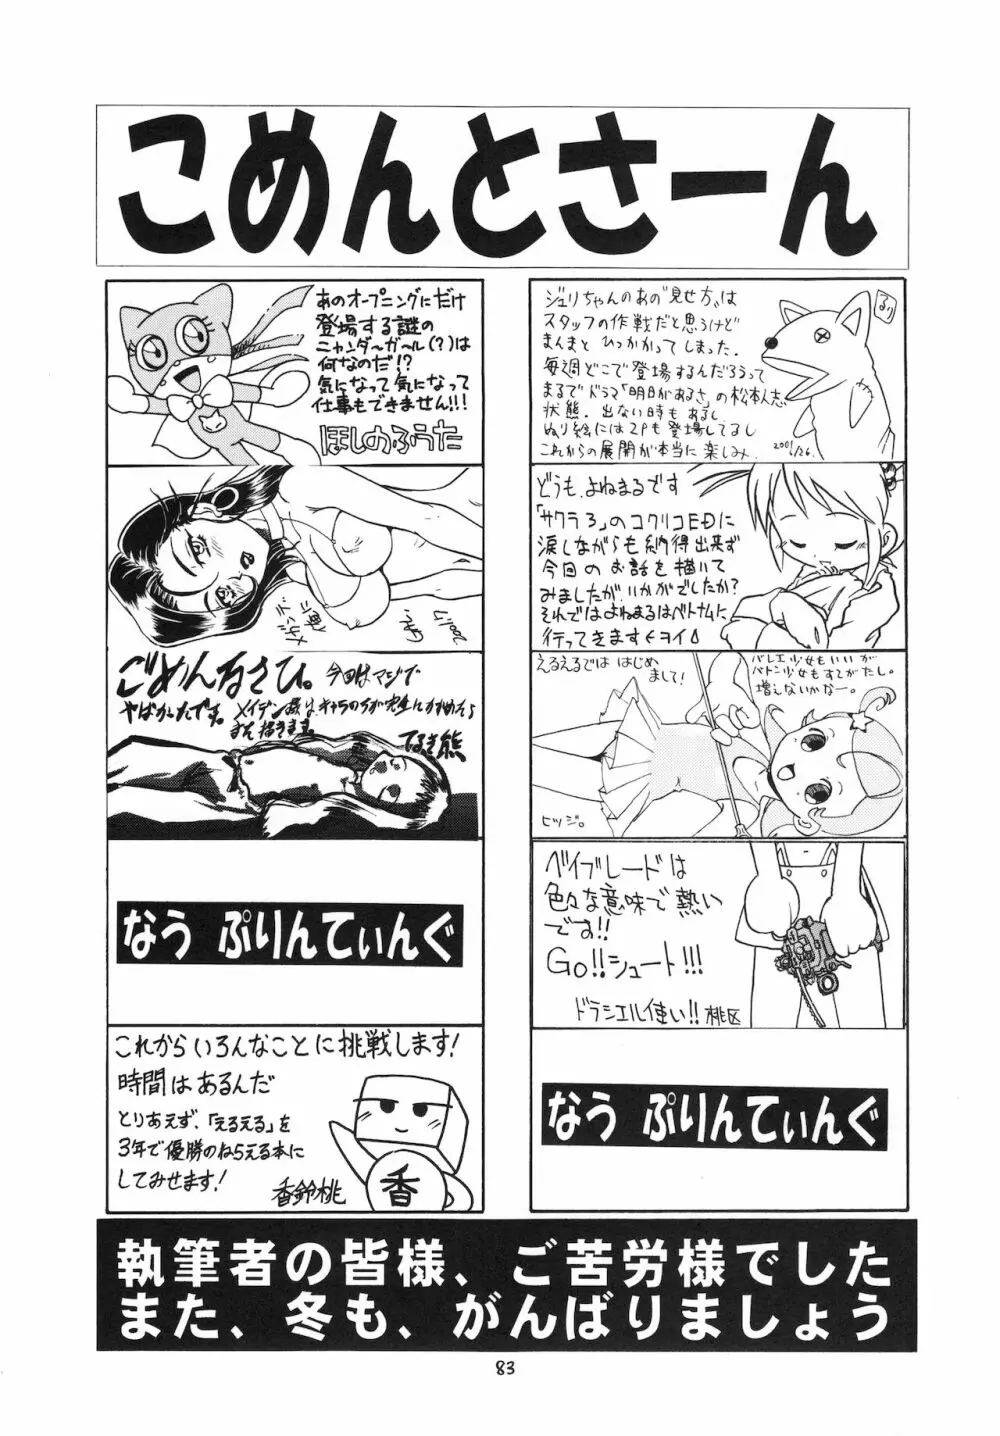 こめんとさーん
あのオープニングにだけ
登場する謎の
ニャンダーガール(?)は
何なのだ!?
気になって気になって
仕事もできません!!!
ほしのふうた
ごめんなさひ。今回はマジで
やばかったです。
てるき熊
なう ぷりんてぃんぐ
これからいろんなことに挑戦します!
時間はあるんだ
とりあえず、「えるえる」を
3年で優勝のねらえる本に
してみせます!
香鈴桃
香
ジュリちゃんのあの"見せ方"は
スタッフの作戦だと思うけど
まんまと ひっかかってしまった.
毎週どこで登場するんだろうって
まるでドラマ「明日があるさ」の松本人志
状態. 出ない時もあるし
ぬり絵には2Pも登場してるし
これからの展開が本当に楽しみ.
るり
どうも、よねまるです
「サクラ3」のコクリコEDに
涙しながらも納得出来ず
今回のお話を描いて
みましたがいかがでしたか?
それではよねまるはベトナムに
行ってきます
えるえるでは はじめ
まして!
バレエ少女もいいが
バトン少女もすてがたし。
増えないかなー。
ヒツジ。
ベイブレードは
色々な意味で熱い
です!!
Go!!シュート!!!
ドラシエル使い!! 桃区
なう ぷりんてぃんぐ
執筆者の皆様、ご苦労様でした
また、冬も、がんばりましょう
83